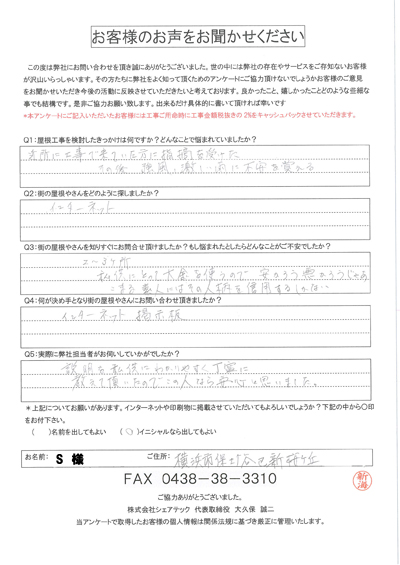 お客様のお声をお聞かせください
この度は弊社にお問い合わせを頂き誠にありがとうございました。世の中には弊社の存在やサービスをご存知ないお客様
が沢山いらっしゃいます。その方たちに弊社をよく知って頂くためのアンケートにご協力頂けないでしょうかお客様のご意見
をお聞かせいただき今後の活動に反映させていただきたいと考えております。良かったこと、嬉しかったことどのような些細な
事でも結構です。是非ご協力お願い致します。出来るだけ具体的に書いて頂ければ幸いです
*本アンケートにご記入いただいたお客様には工事ご依頼時に工事金額税抜きの 2%をキャッシュバックさせていただきます。
Q1:屋根工事を検討したきっかけは何ですか?どんなことで悩まれていましたか?
近所に工事で来ていた方に指摘を受けた
その後 強風、激しい雨に不安を覚える
Q2:街の屋根やさんをどのように探しましたか?
インターネット
Q3:街の屋根やさんを知りすぐにお問合せ頂けますか?もし悩まれたとしたらどんなことがご不安でしたか?
私供にとって大金を使うので 安かろう悪かろうじゃあ
素人にはその人柄を信用するしかない
Q4:何が決め手となり街の屋根やさんにお問い合わせ頂きましたか?
インターネット 掲示板
Q5:実際に弊社担当者がお伺いしていかがでしたか?
説明を私供にわかりやすく丁寧に
教えて頂いたのでこの人なら安心と思いました。
*上記についてお願いがあります。インターネットや印刷物に掲載させていただいてもよろしいでしょうか?下記の中から○印
をお付け下さい。
( )名前を出してもよい (○)イニシャルなら出してもよい
お名前: S 様 ご住所: 横浜市保土ケ谷区新桜ケ丘
FAX 0438-38-3310
新海
ご協力ありがとうございました。
株式会社シェアテック 代表取締役 大久保 誠二
当アンケートで取得したお客様の個人情報は関係法規に基づき厳正に管理いたします。